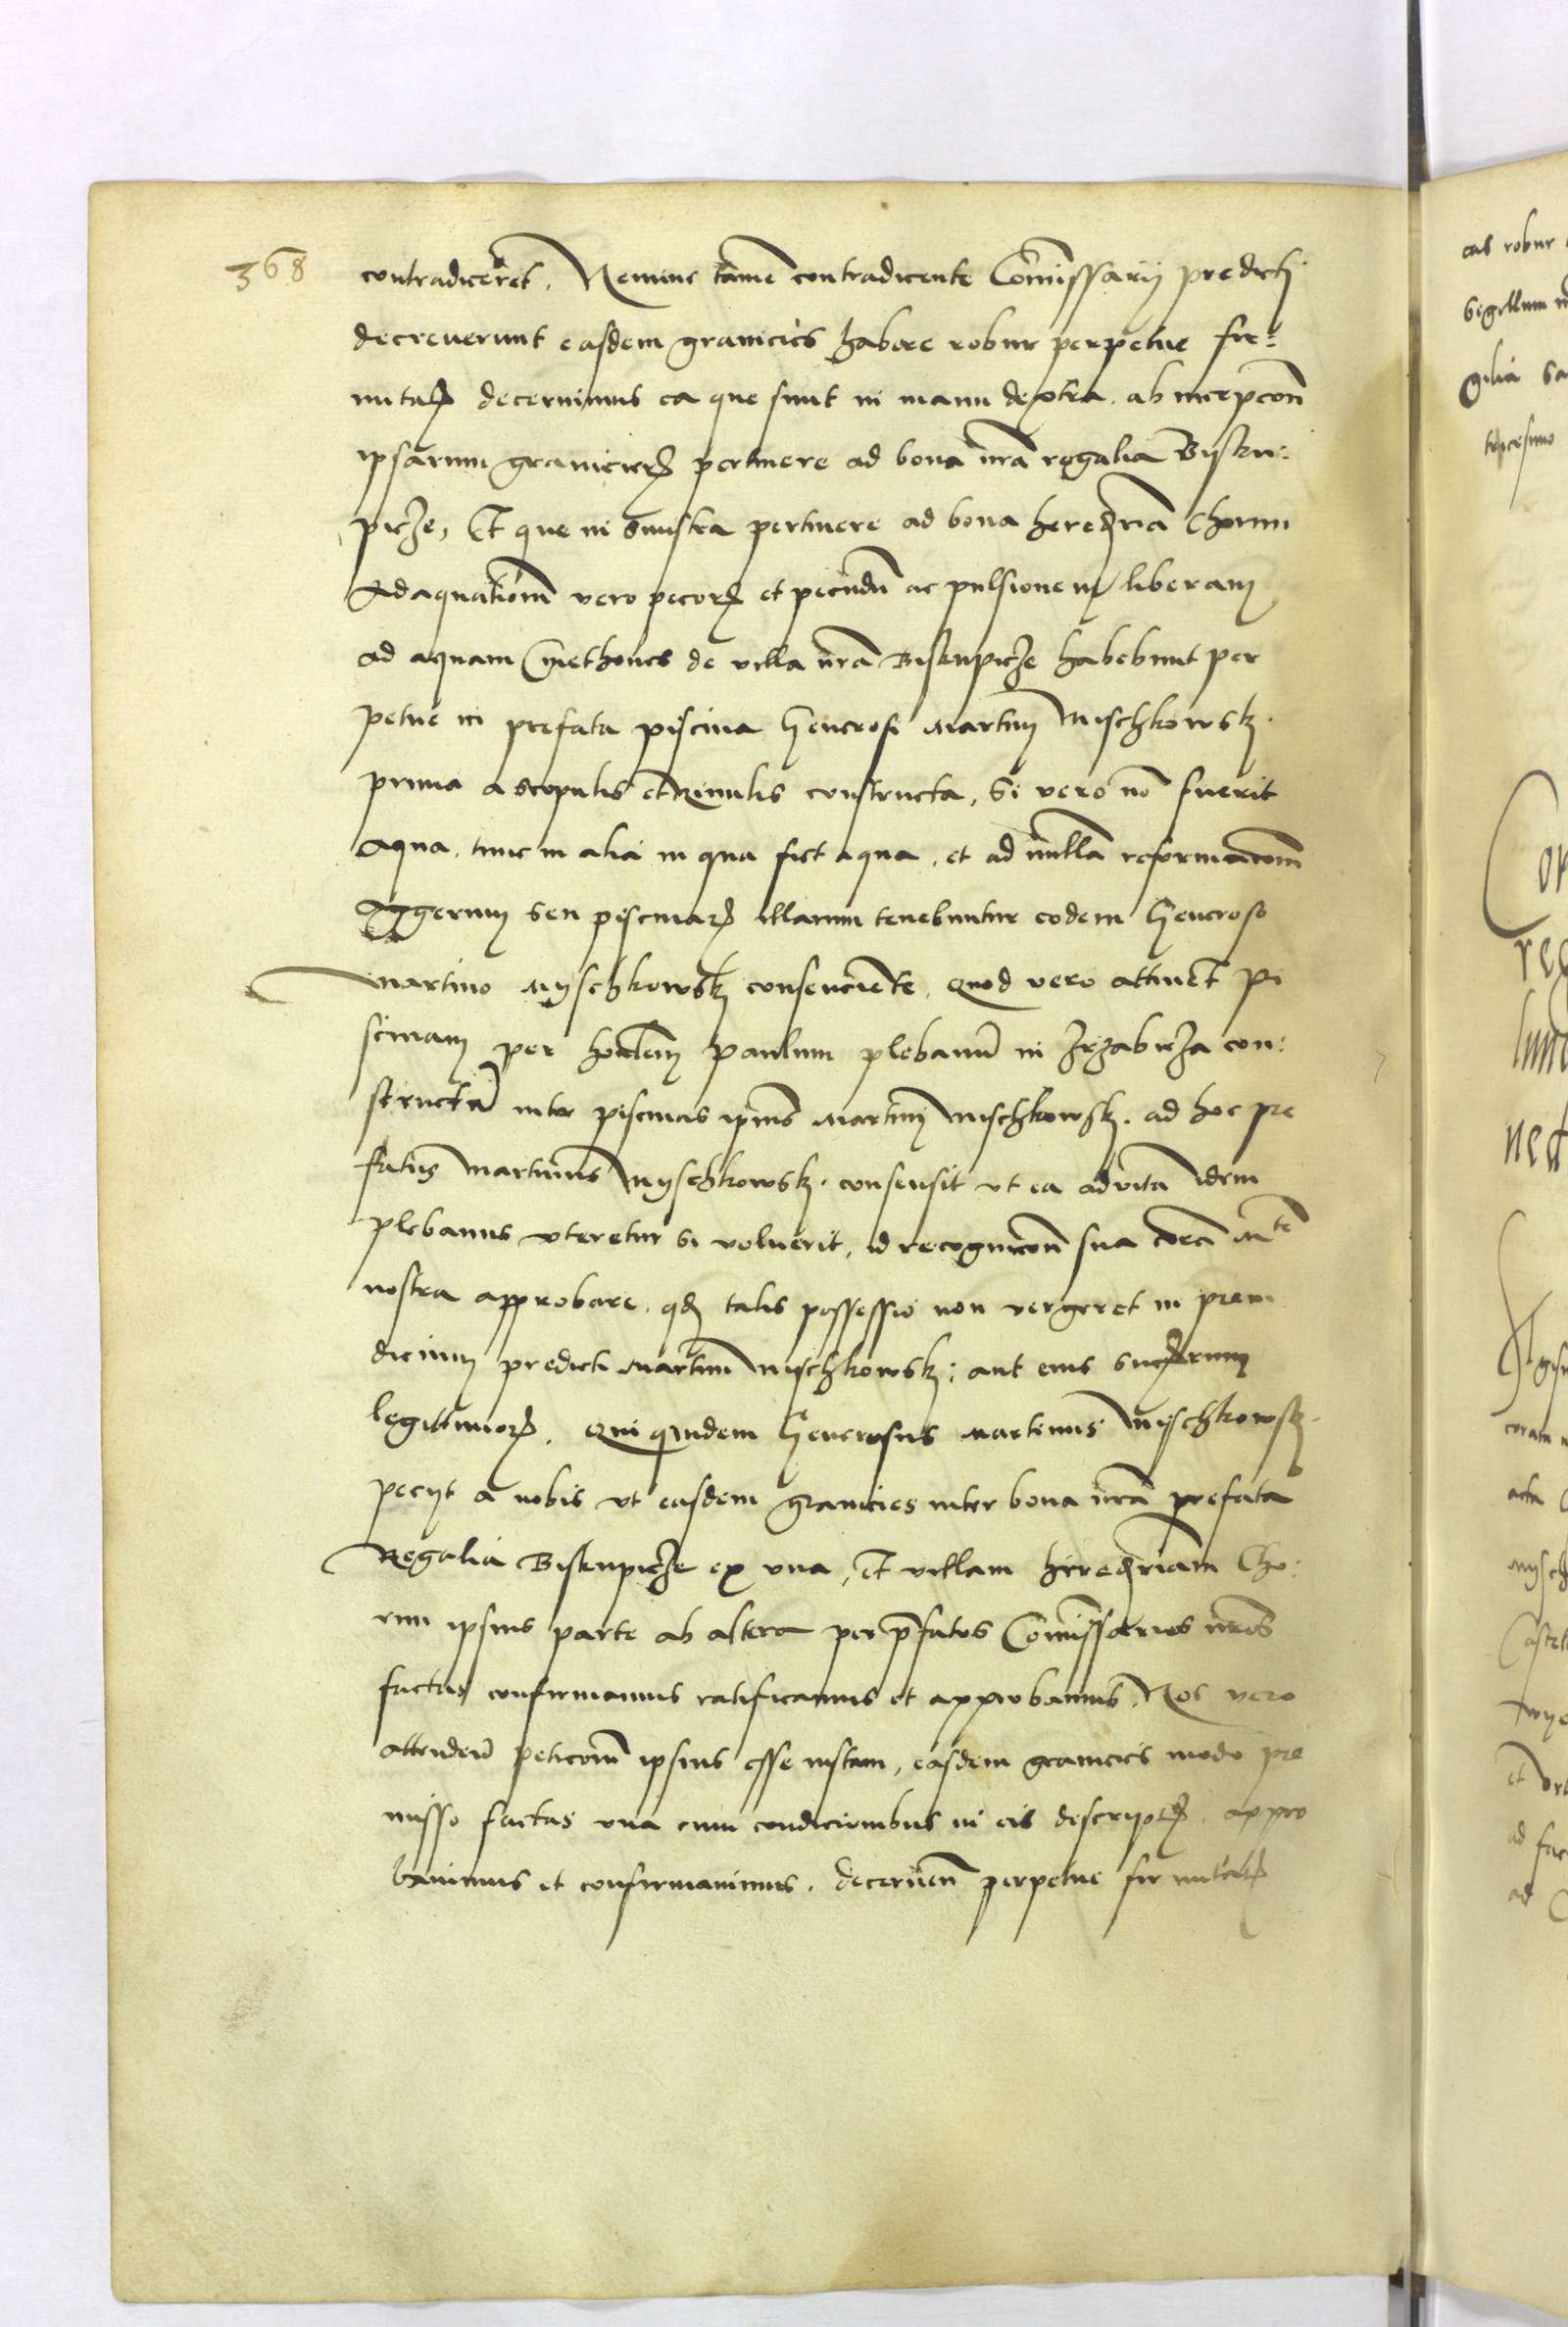 368
contradiceret. Nemine tamē contradicente Com̄issarij predicti
decreverunt easdem granicies habere robur perpetue fir:
mitatꝭ decernimus ea que sunt in manu dextra ab incepcon̄
ipsarum granicierꝝ pertinere ad bona nr̄a regalia Bisku:
picze, Et que in sinistra pertinere ad bona hereḋria Chorun
Adaquationem vero pecorꝝ et pecudū ac pulsionem liberam
ad aquam Cmethones de villa nr̄a Biskupicze habebunt per
petue in prefata piscina Generosi Martini Mischkowskj.
prima a scopulis et Rivulis constructa, Si vero nō fuerit
aqua, tunc in alia in qua fiet aqua, et ad nullā reformacoem
Aggerum seu piscinarꝝ illarum tenebuntur eodem Generoso
Martino Myschkowskj consenciente, Quod vero attinet pi
scinam per hon̄lem Paulum plebanū in Irzabicza con:
structā inter piscinas ipius Martini Mischkowskj. ad hoc pre
fatus Martinus Myschkowskj. consensit vt ea ad vitā idem
plebanus vteretur si voluerit, id recognicon̄ sua corā Mte
nostra approbare, qd̄ talis possessio non vergeret in preiu
dicium predicti Martini Mischkowskj: aut eius succ̄rum
legittimorꝝ. Qui quidem Generosus Martinus Mischkowskj.
pecijt a nobis vt easdem granicies inter bona nr̄a prefata
Regalia Biskupicze ex vna, Et villam hereḋriam Cho:
run ipsius parte ab altera per p̄fatos Com̄issarios nr̄os
factas confirmaremus ratificaremus et approbaremus, Nos vero
attenden̄ peticoem ipsius esse iustam, easdem granicies modo pre
misso factas vna cum condicionibus in eis descriptꝭ appro
bavimus et confirmavimus. decernen̄ perpetue firmitatꝭ